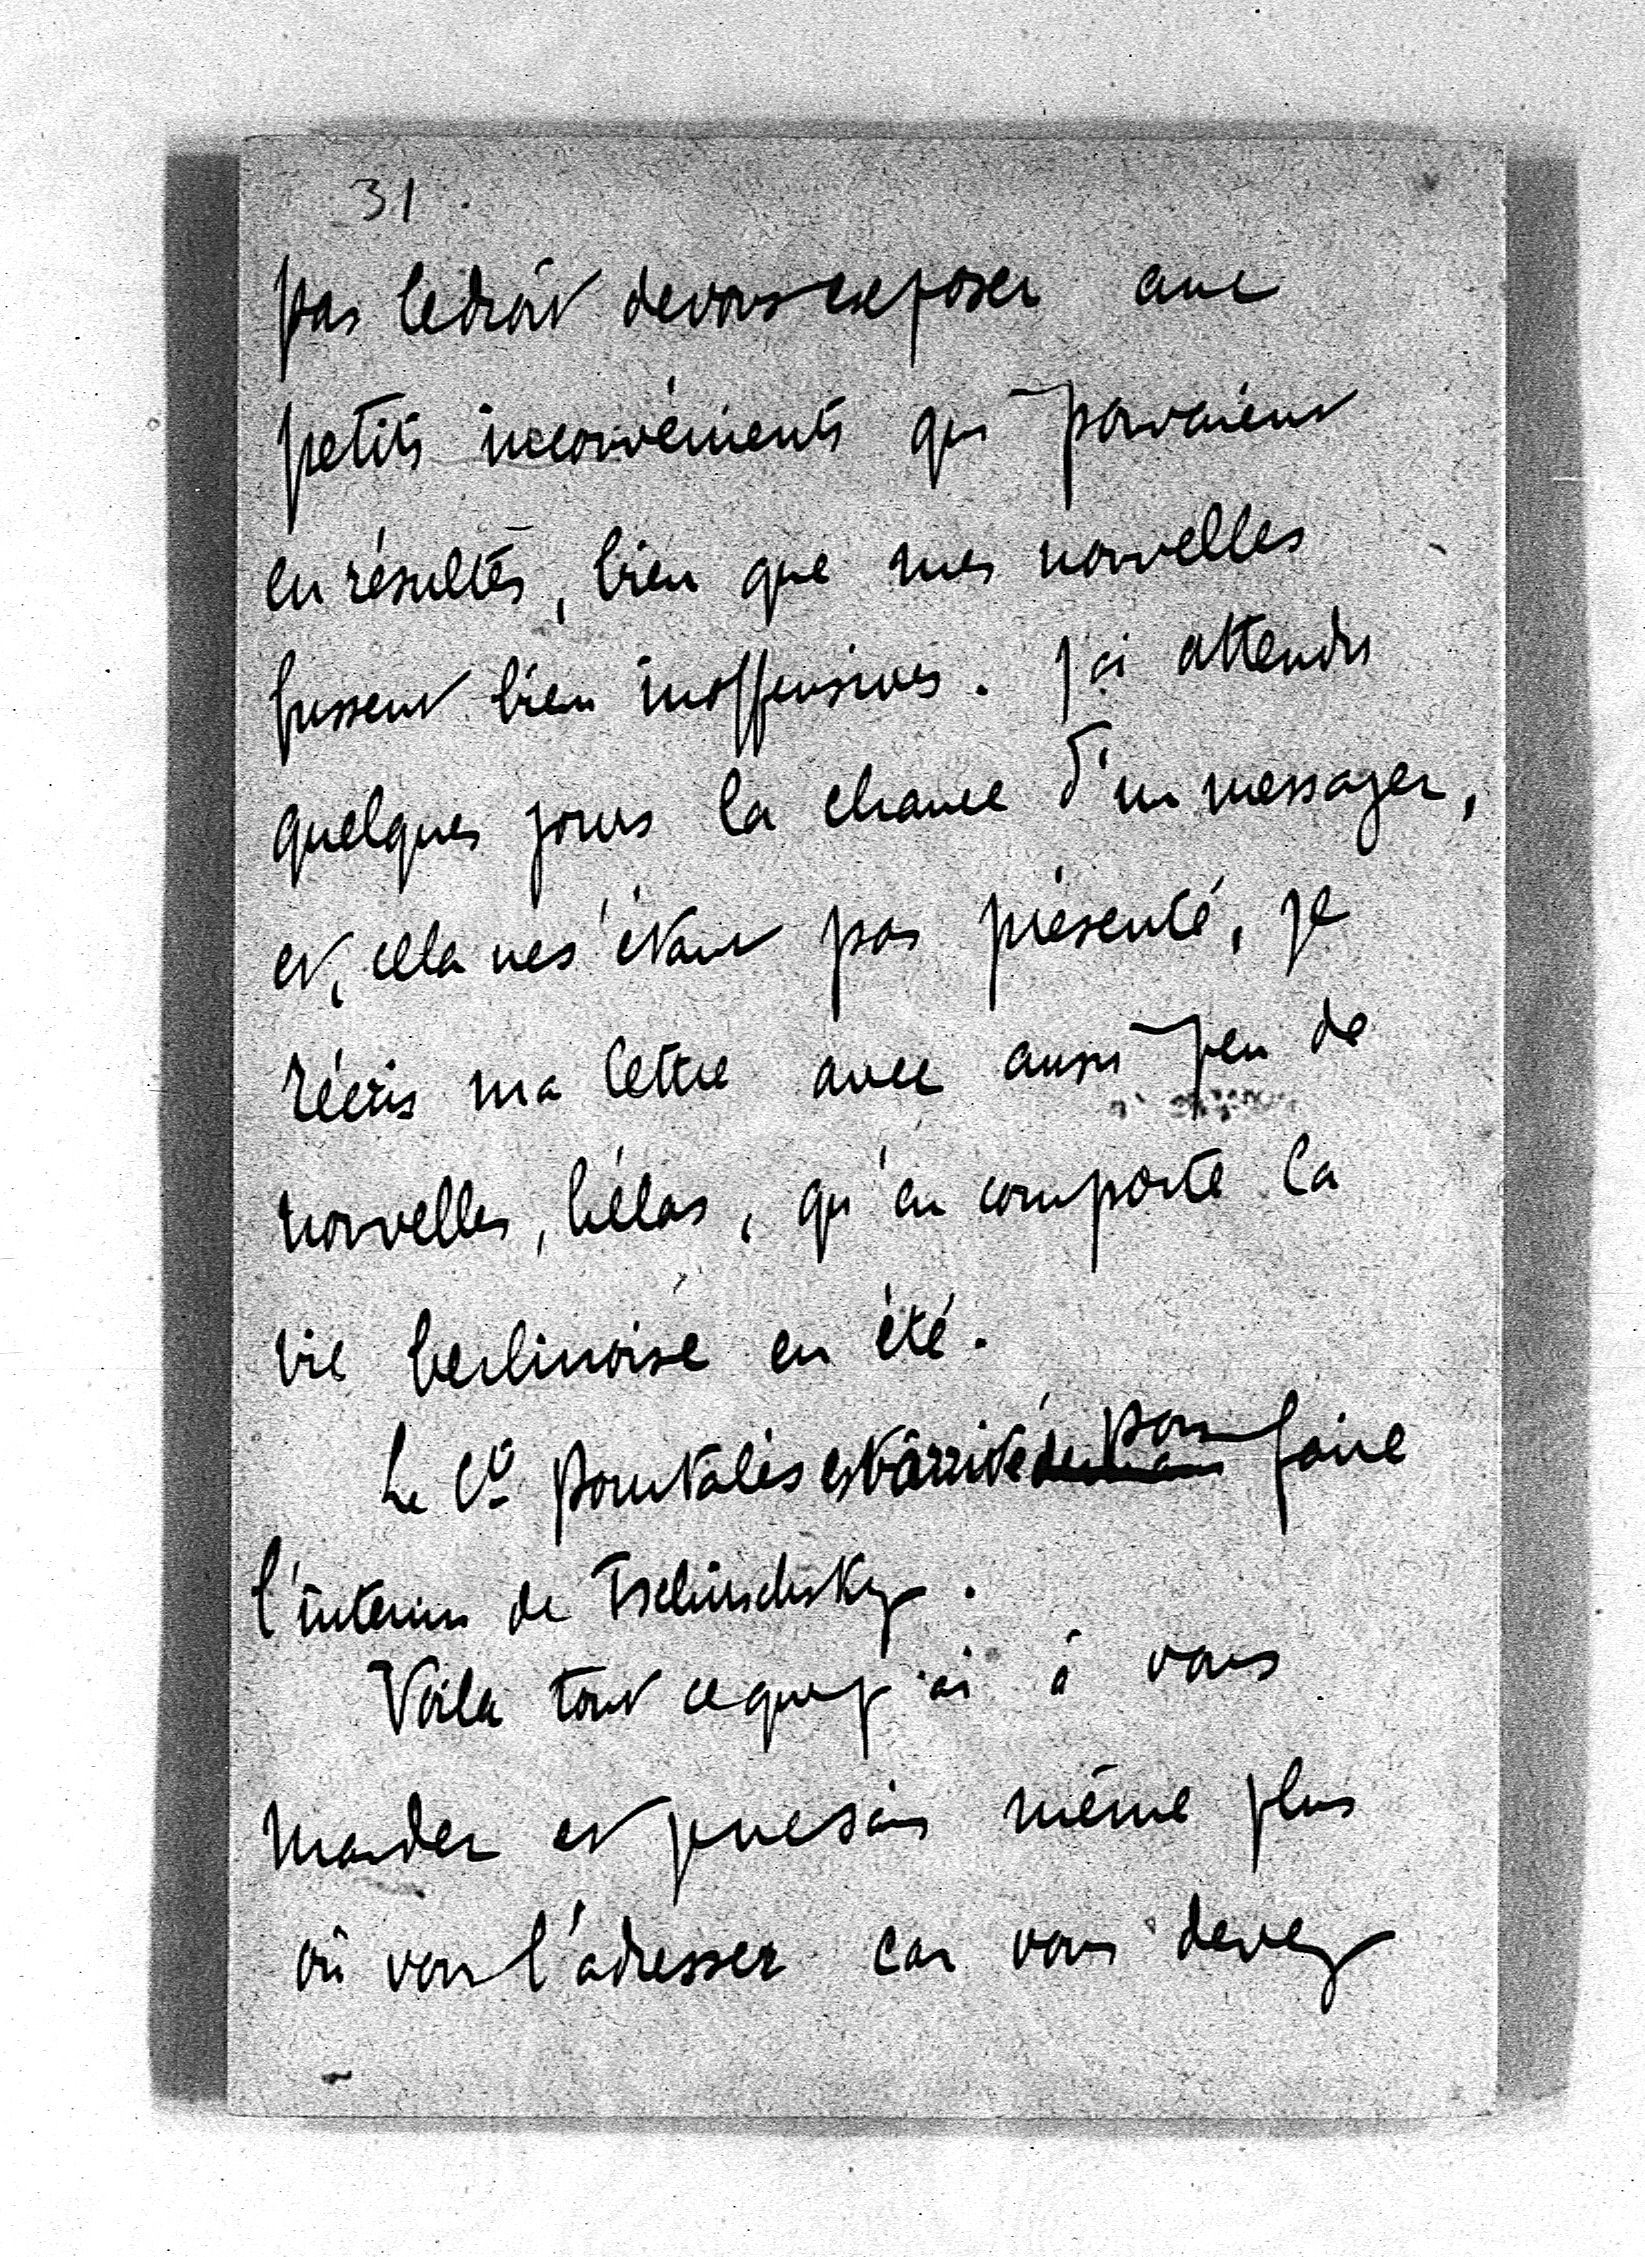 31.
pas le droit de vous exposer aux
petits inconvénients qui pouvaient
en résulter, bien que mes nouvelles
fussent bien inoffensives. J'ai attendu
quelques jours la chance d'un messager,
et, cela ne s'étant pas présenté, je
récris ma lettre avec aussi peu de
nouvelles, hélas, qu'en comporte la
vie berlinoise en été.
Le Cte Pourtalès est arrivé pour faire
l'intérim de Tschirschsky.
Voila tout ce que j'ai à vous
mander et je ne sais même plus
où vous l'adresser car vous devez